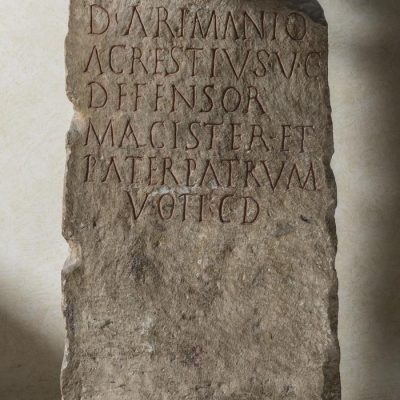 D·ARIMANIO
AGRESTIVS·V·C
DEFENSOR
MAGISTER·ET
PATER PATRVM
VOTI·C·D